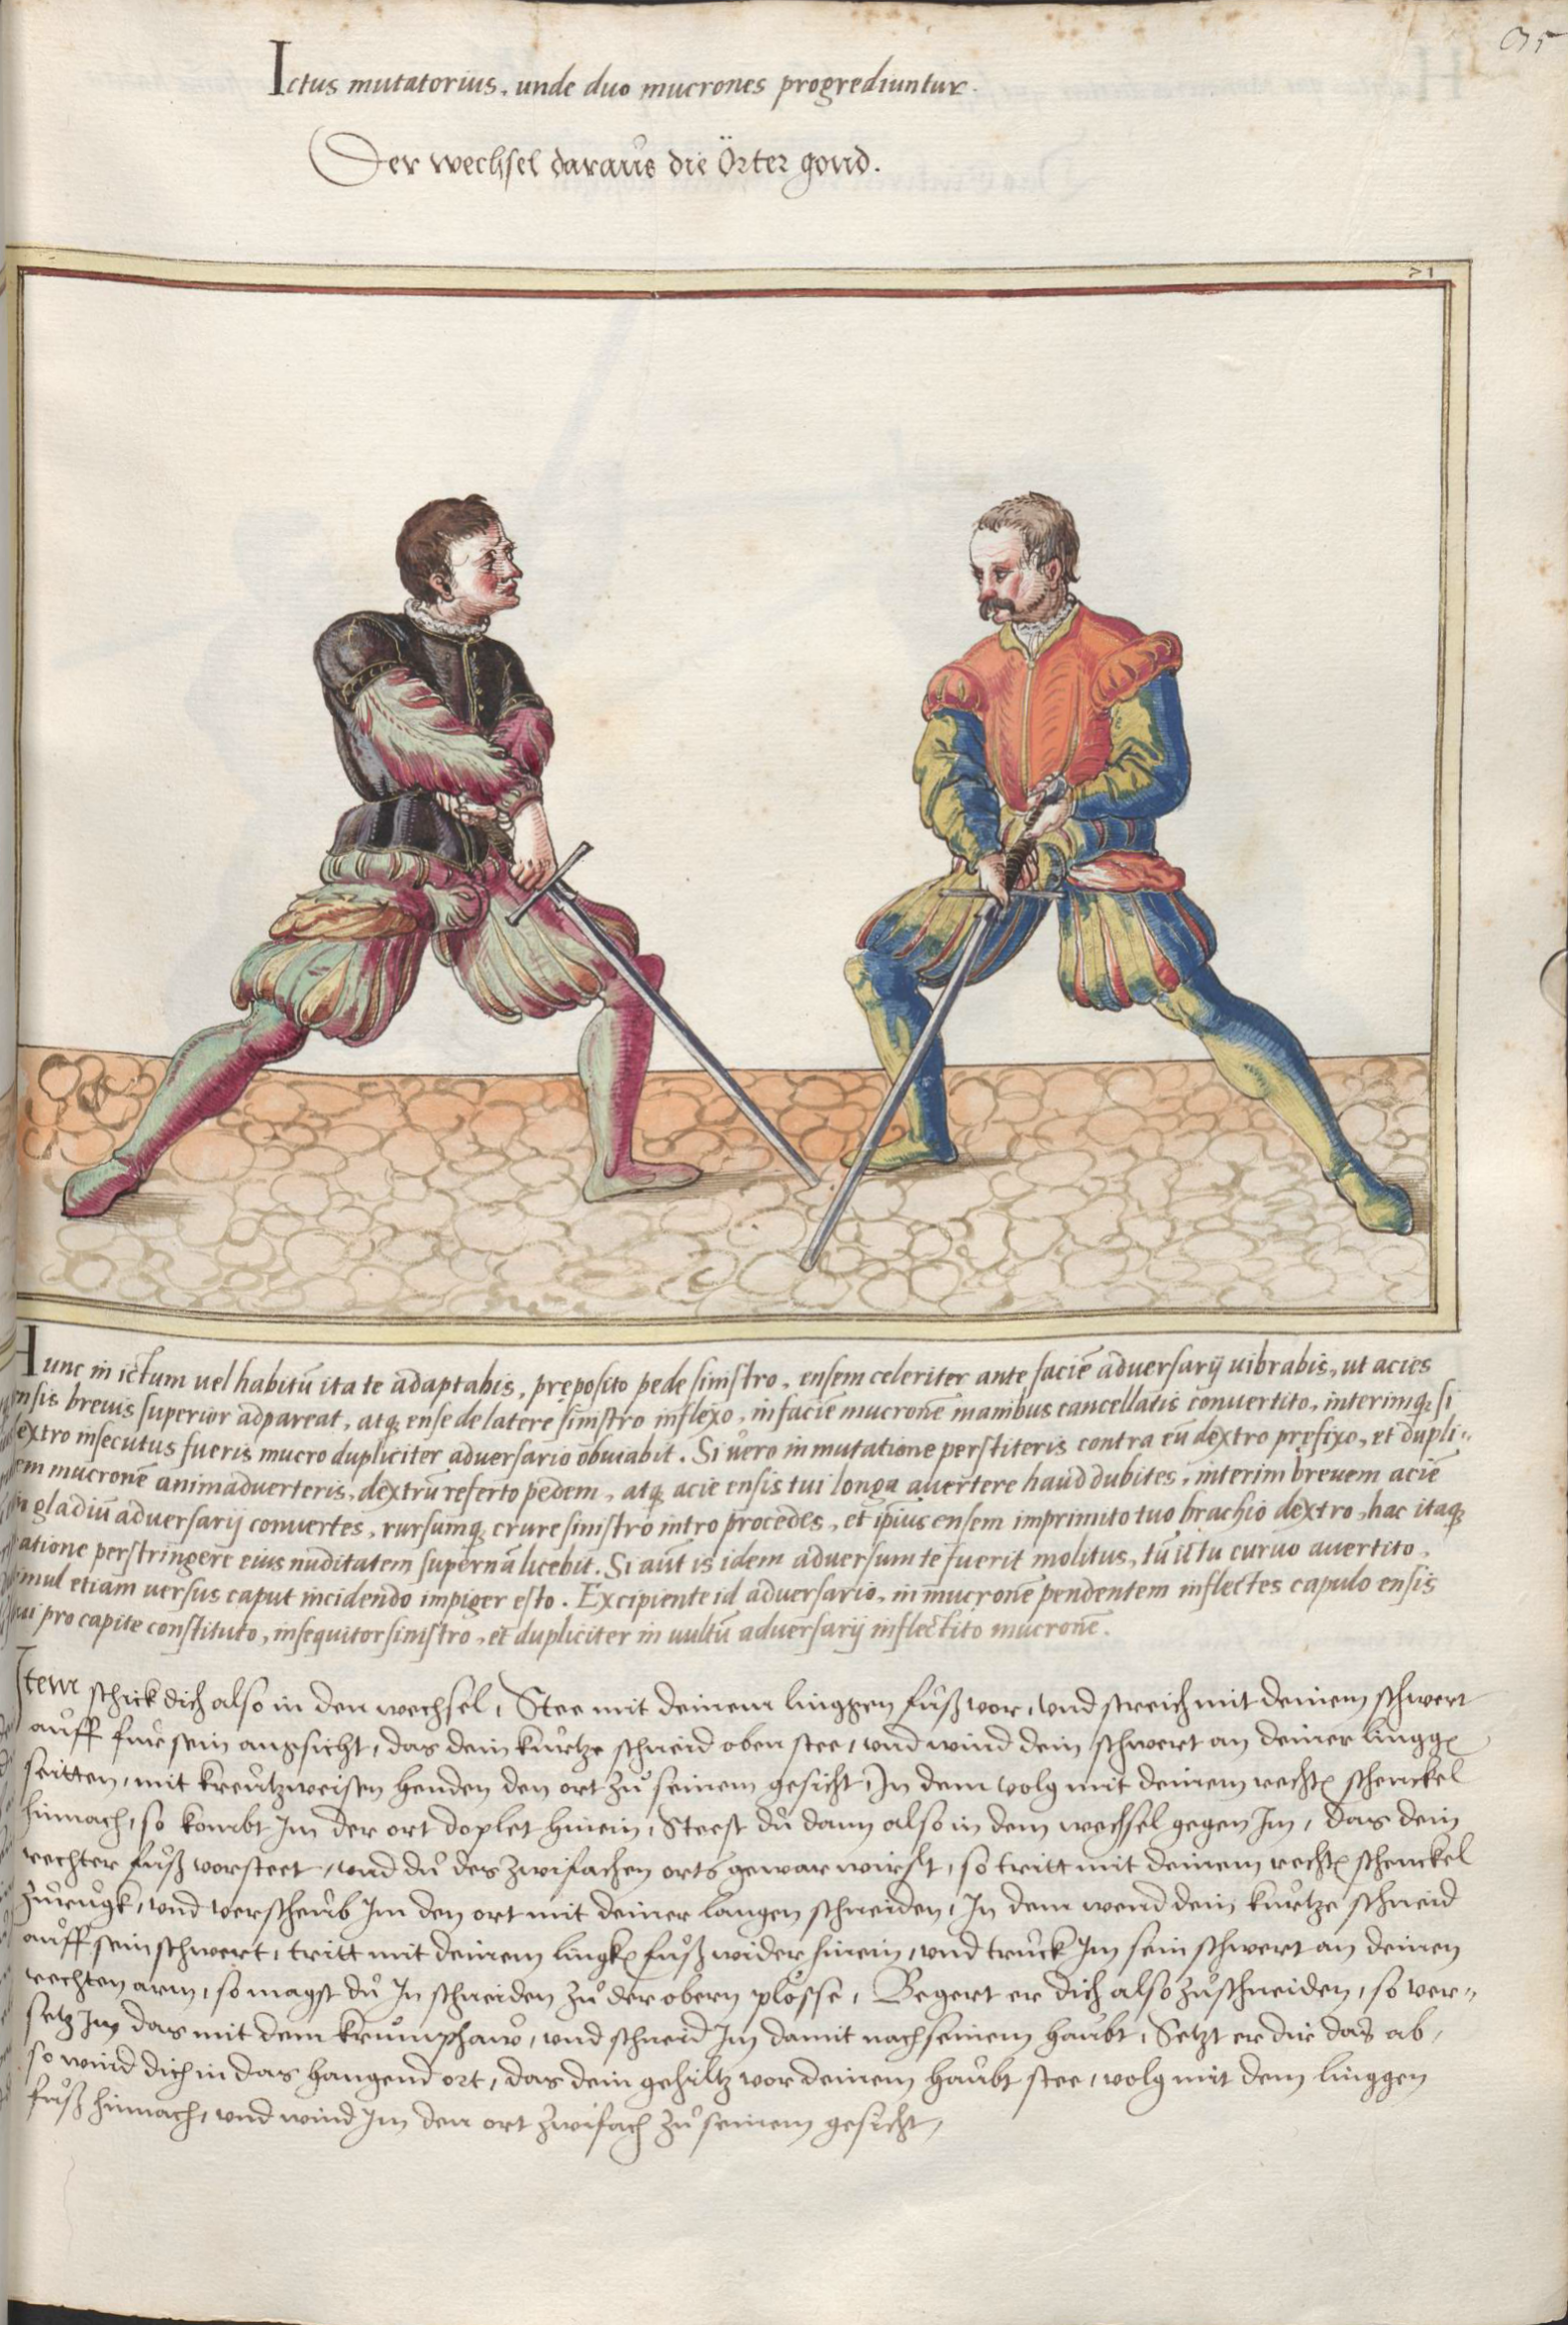 95
Ictus mutatorius, unde duo mucrones progrediuntur.
Der wechsel daraus die Örter gond.
71
Hunc in ictum uel habitũ ita te adaptabis, pręposito pede sinistro, ensem celeriter ante faciẽ aduersarij uibrabis, ut acies
ensis breuis superior adpareat, atq; ense de latere sinistro inflexo, in faciẽ mucronẽ manibus cancellatis conuertito, interimq; si
dextro insecutus fueris mucro dupliciter aduersario obuiabit. Si uero in mutatione perstiteris contra eũ dextro pręfixo, et dupli-
cem mucronẽ animaduerteris, dextrũ referto pedem, atq; acie ensis tui longa auertere haud dubites, interim breuem aciẽ
in gladiũ aduersarij conuertes, rursumq; crure sinistro intro procedes, et ip̃ius ensem imprimito tuo brachio dextro, hac itaq;
ratione perstringere eius nuditatem supernã licebit. Si aũt is idem aduersum te fuerit molitus, tũ ictu curuo auertito,
simul etiam uersus caput incidendo impiger esto. Excipiente id aduersario, in mucronẽ pendentem inflectes capulo ensis
tui pro capite constituto, insequitor sinistro, et dupliciter in uultũ aduersarij inflectito mucronẽ.
Item schick dich also in den wechsel, Stee mit deinem linggen fůß vor, vnd streich mit deinem schwert
auff für sein angsicht, das dein kurtze schneid oben stee, vnd wind dein schwert an deiner lingg
seitten, mit kreutzweisen henden den ort zů seinem gesicht, In dem volg mit deinem recht schenckel
hinnach, so kombt Im der ort doplet hinein, Steest dů dann also in dem wechsel gegen Im, das dein
rechter fůß vorsteet, vnd dů des zwifachen orts gewar wirst, so tritt mit deinem recht schenckel
zurugk, vnd verscheub Im den ort mit deiner langen schneiden, In dem wend dein kurtze schneid
auff sein schwert, tritt mit deinem lingk fůß wider hinein, vnd truck Im sein schwert an deinen
rechten arm, so magst dů In schneiden zů der obern plösse, Begert er dich also zůschneiden, so ver-
setz Im das mit dem krumphaw, vnd schneid Im damit nach seinem haubt, Setzt er dir das ab,
so wind dich in das hangend ort, das dein gehiltz vor deinem haubt stee, volg mit dem linggen
fůß hinnach, vnd wind Im den ort zwifach zů seinem gesicht,